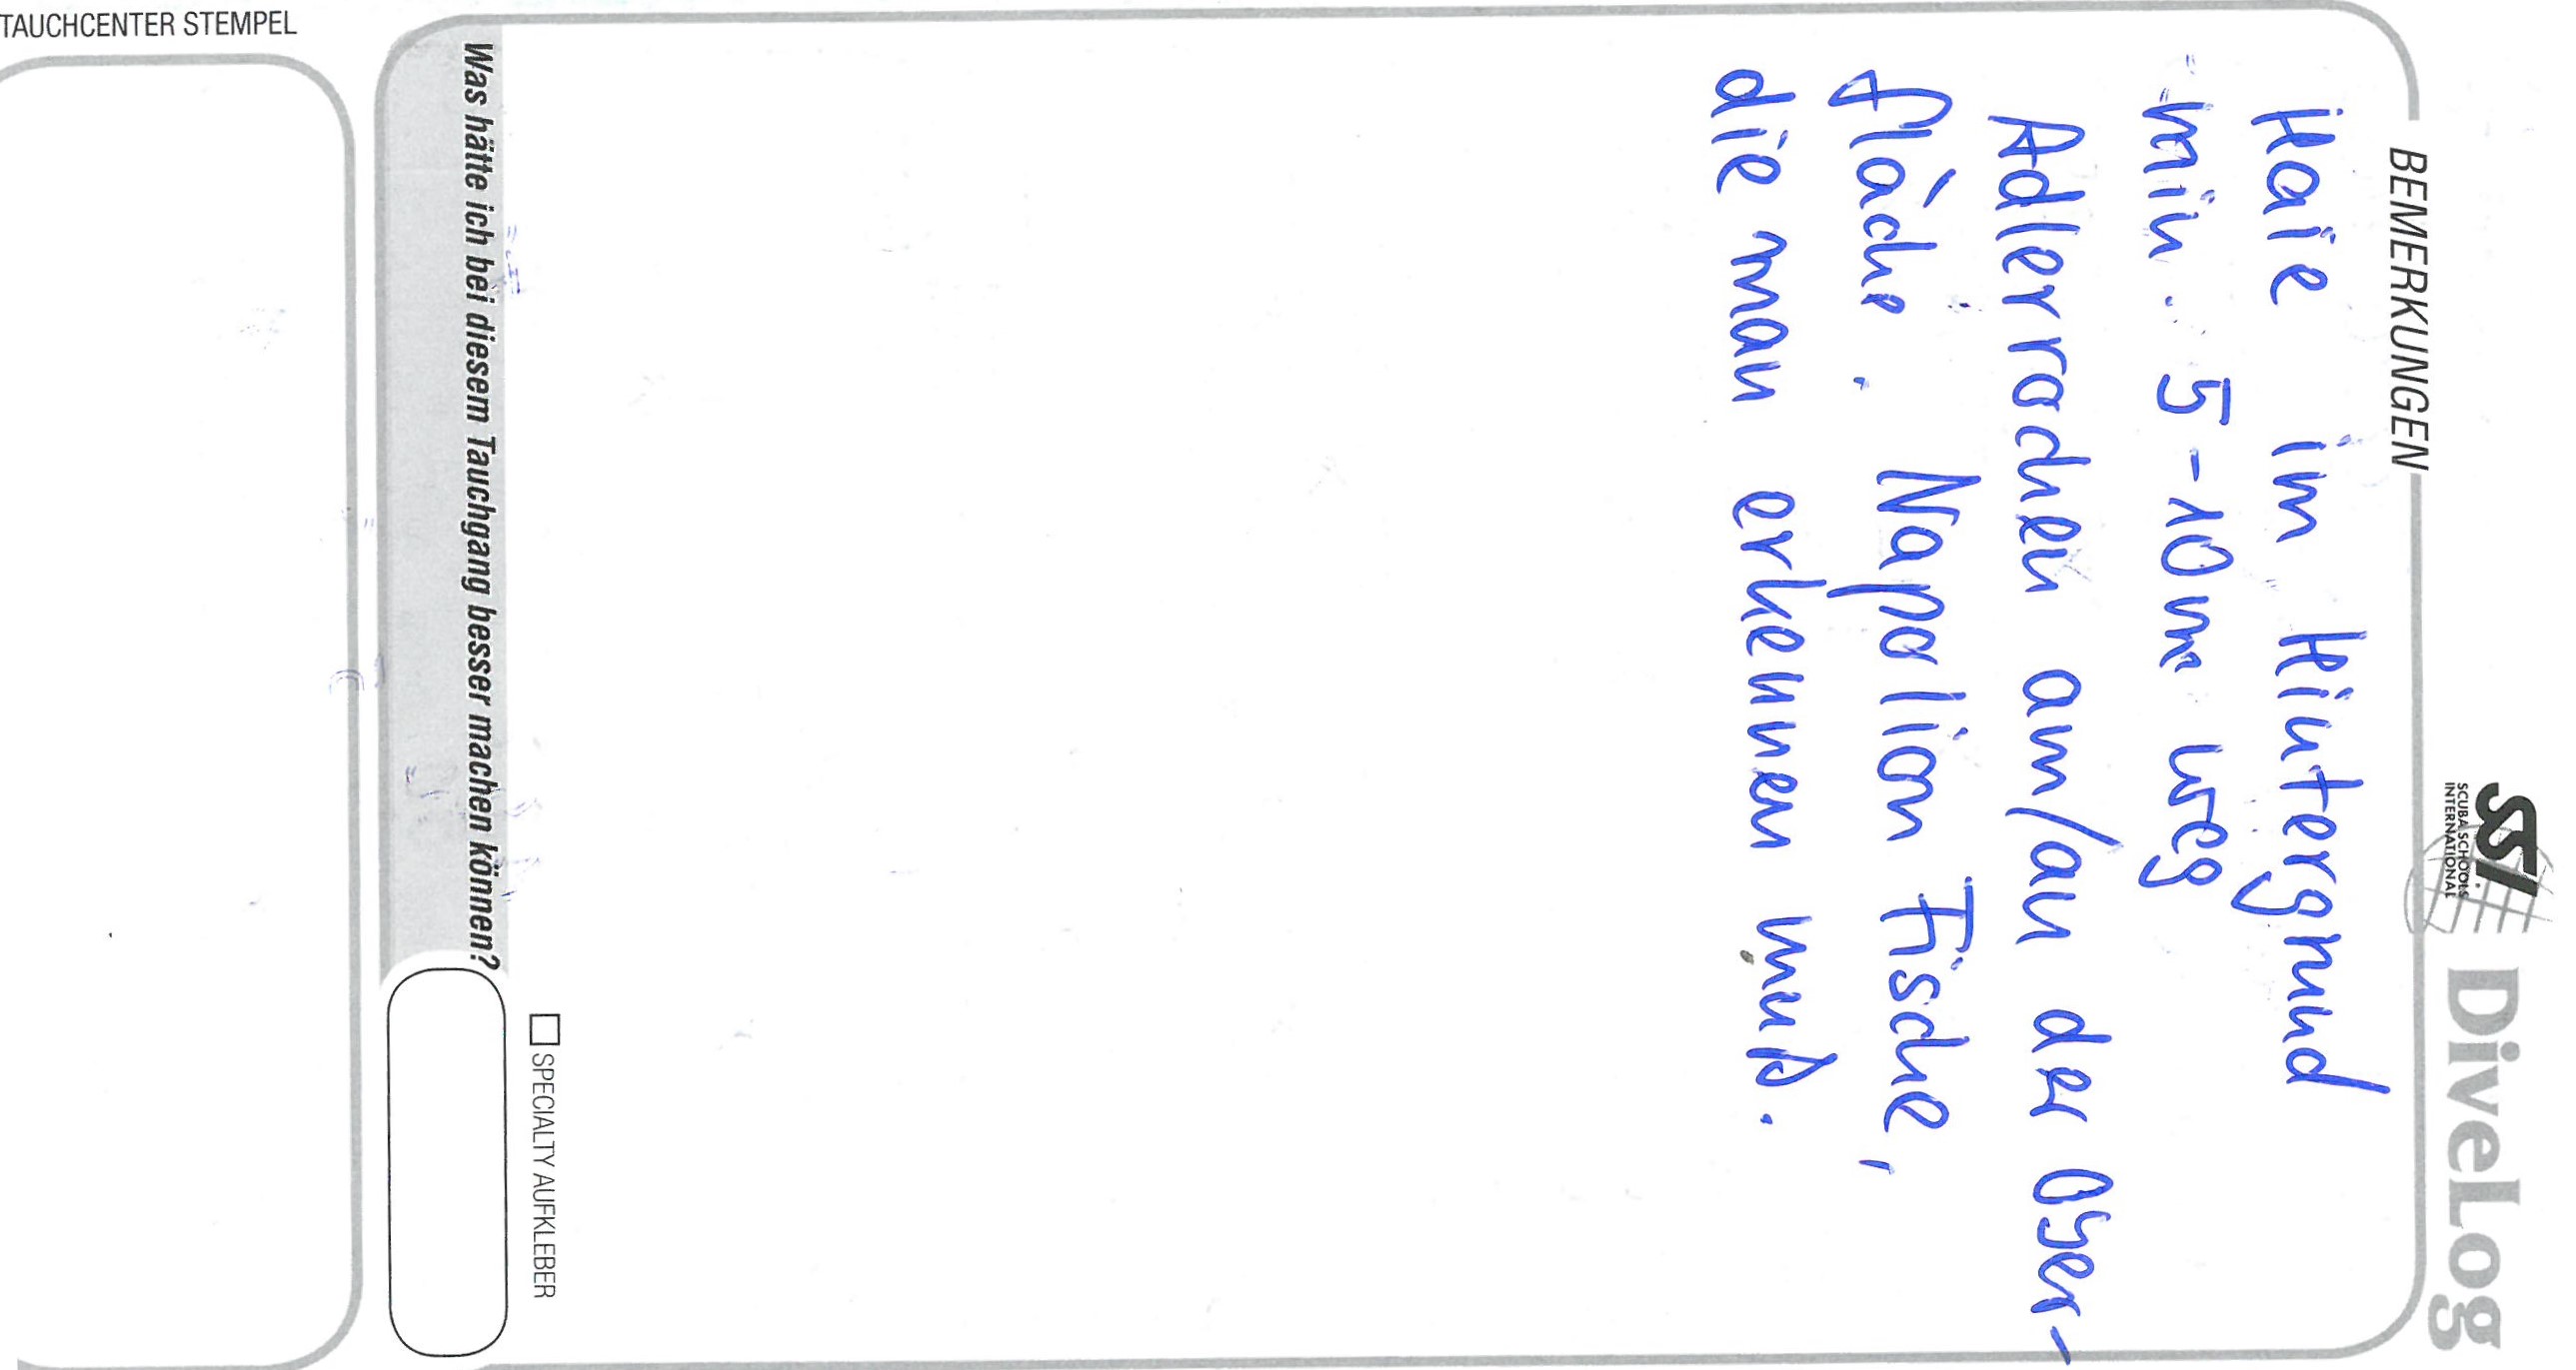 SSI DiveLog
SCUBA SCHOOLS
INTERNATIONAL
BEMERKUNGEN
Haie im Hintergrund
min. 5-10m weg
Adlerrochen am/an der Ober-
fläche. Napolion Fische,
die man erkennen muß.
SPECIALTY AUFKLEBER
Was hätte ich bei diesem Tauchgang besser machen können?
TAUCHCENTER STEMPEL